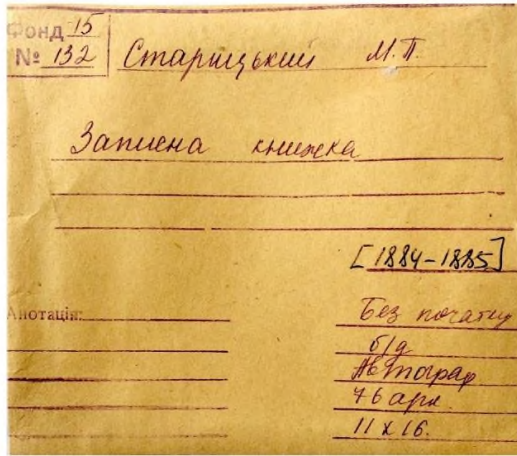 Фонд 15
№ 132
Старицький М.П.
Записна книжка
[1884-1885]
Анотація:
Без початку
б/д
Автограф
76 арк.
11 х 16.